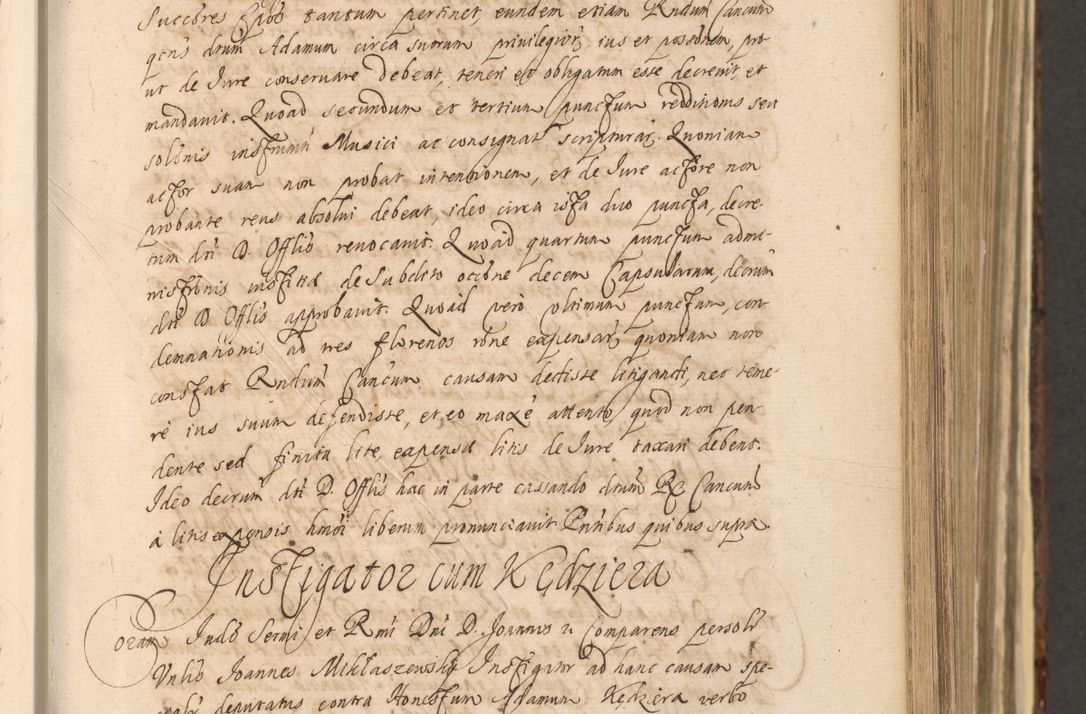 Succōres Epōs tantum pertinet, eundem etiam Rndum Cancum
dnūm Adamum circa suorum privilegiorz ius et possōnem, pro
ut de Jure conservare debeat, teneri et obligatum esse decrevit, et
mandavit. Quoad secundum et tertium punctum redditionis seu
solōnis instrumti Musici ac consignat scripturarz. Quoniam
actor suam non probat intentionem, et de Jure actōre non
probante reus absolvi debeat, ideo circa ista duo puncta, decre-
tum dti D. Offlis revocavit. Quoad quartum punctum admi-
nistrōnis de Subdito decem Capsularum, decrūm
dti D Offlis approbavit. Quoad vero ultimum punctum, con-
demnationis ad tres florenos rōne expensarz, quoniam non
constat Rndum Cancum causam dedisse litiganti, nec teme-
rè ius suum defendisse, et eo maxè attento, quod non pen-
dente sed finita lite, expensæ litis de Jure taxari debent.
Ideo decrum dti D. Offlis hac in parte cassando dnum R. Cancum
à litis expensis hmōi liberum pronunciavit Pntibus quibus supra
Instigator cum Kędziera
Coram Judō Sermi et Rmi Dni D. Joannis Comparens persolr
Joannes Mikłaszewski Instigator ad hanc causam spe-
cialr deputatus contra Honestum Adamum Kędziera verbo